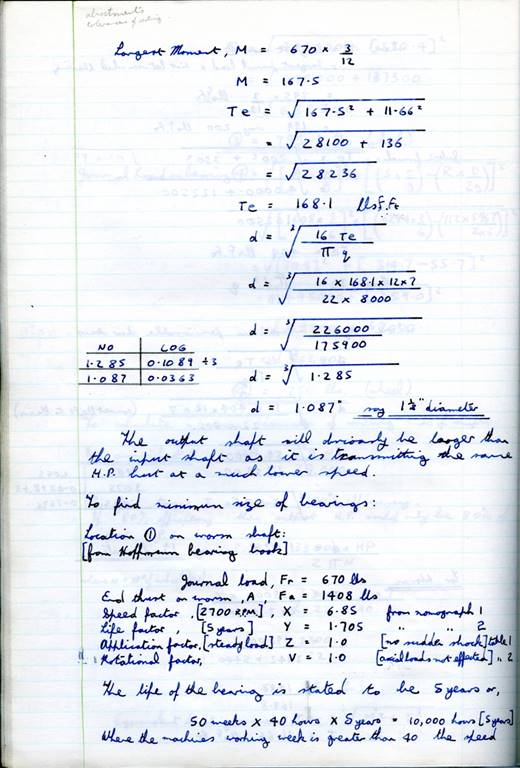 Largest Moment, M = 670 x 3/12
M = 167.5
Te = √167.5² + 11.66²
= √28100 + 136
= √28236
Te = 168.1 lbs f.ft
d = ³√16 Te / π q
d = ³√16 x 168.1 x 12 x 7 / 22 x 8000
d = ³√226000 / 175900
NO LOG
1.285 0.1089 ÷3
1.087 0.0363
d = ³√1.285
d = 1.087" say 1⅛" diameter
The output shaft will obviously be larger than
the input shaft as it is transmitting the same
H.P. but at a much lower speed.
To find minimum size of bearings:
Location ① on worm shaft:
[from Hoffmann bearing book]
Journal load, Fr = 670 lbs
End thrust on worm, A Fa = 1408 lbs
Speed factor, [2700 RPM], X = 6.85 from nomograph 1
Life factor, [5 years] Y = 1.705 " " 2
Application factor, [steady load] Z = 1.0 [no sudden shock] table 1
Rotational factor, V = 1.0 [axial loads not effected] " 2
The life of the bearing is stated to be 5 years or,
50 weeks x 40 hours x 5 years = 10,000 hours [5 years]
Where the machines working week is greater than 40 the speed